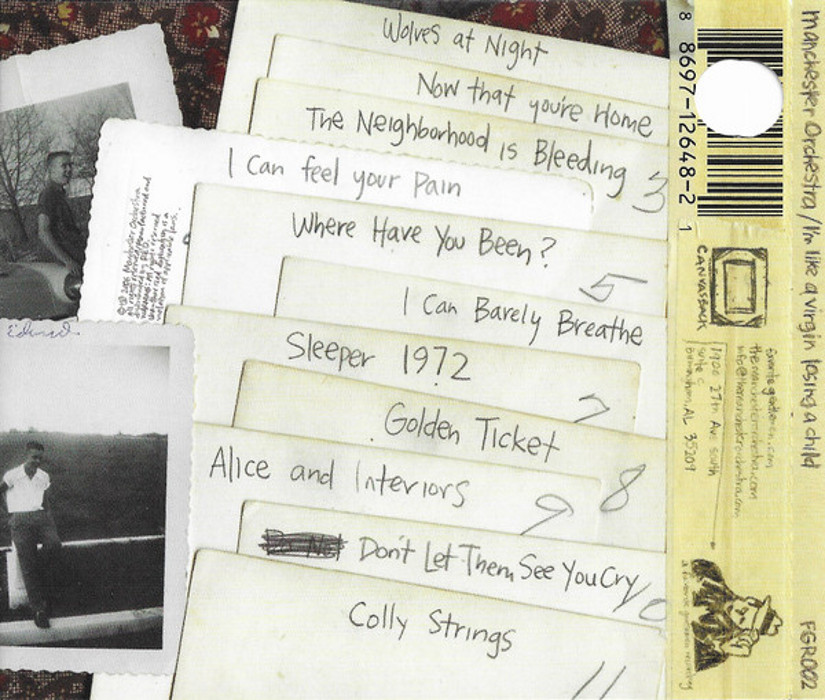 Wolves at Night
Now that you're Home
The Neighborhood is Bleeding
3
I Can feel your Pain
Where Have You Been?
5
I Can Barely Breathe
Sleeper 1972
7
Golden Ticket
8
Alice and Interiors
9
Don't Let Them See You Cry
10
Colly Strings
11
Edward
8 8697-12648-2 1
CANVASBACK
favorite gentlemen.com
themanchesterorchestra.com
info@themanchesterorchestra.com
1900 27th Ave South
Suite C
Birmingham, AL 35209
a favorite gentlemen recording
manchester Orchestra / I'm like a virgin losing a child
FGR002